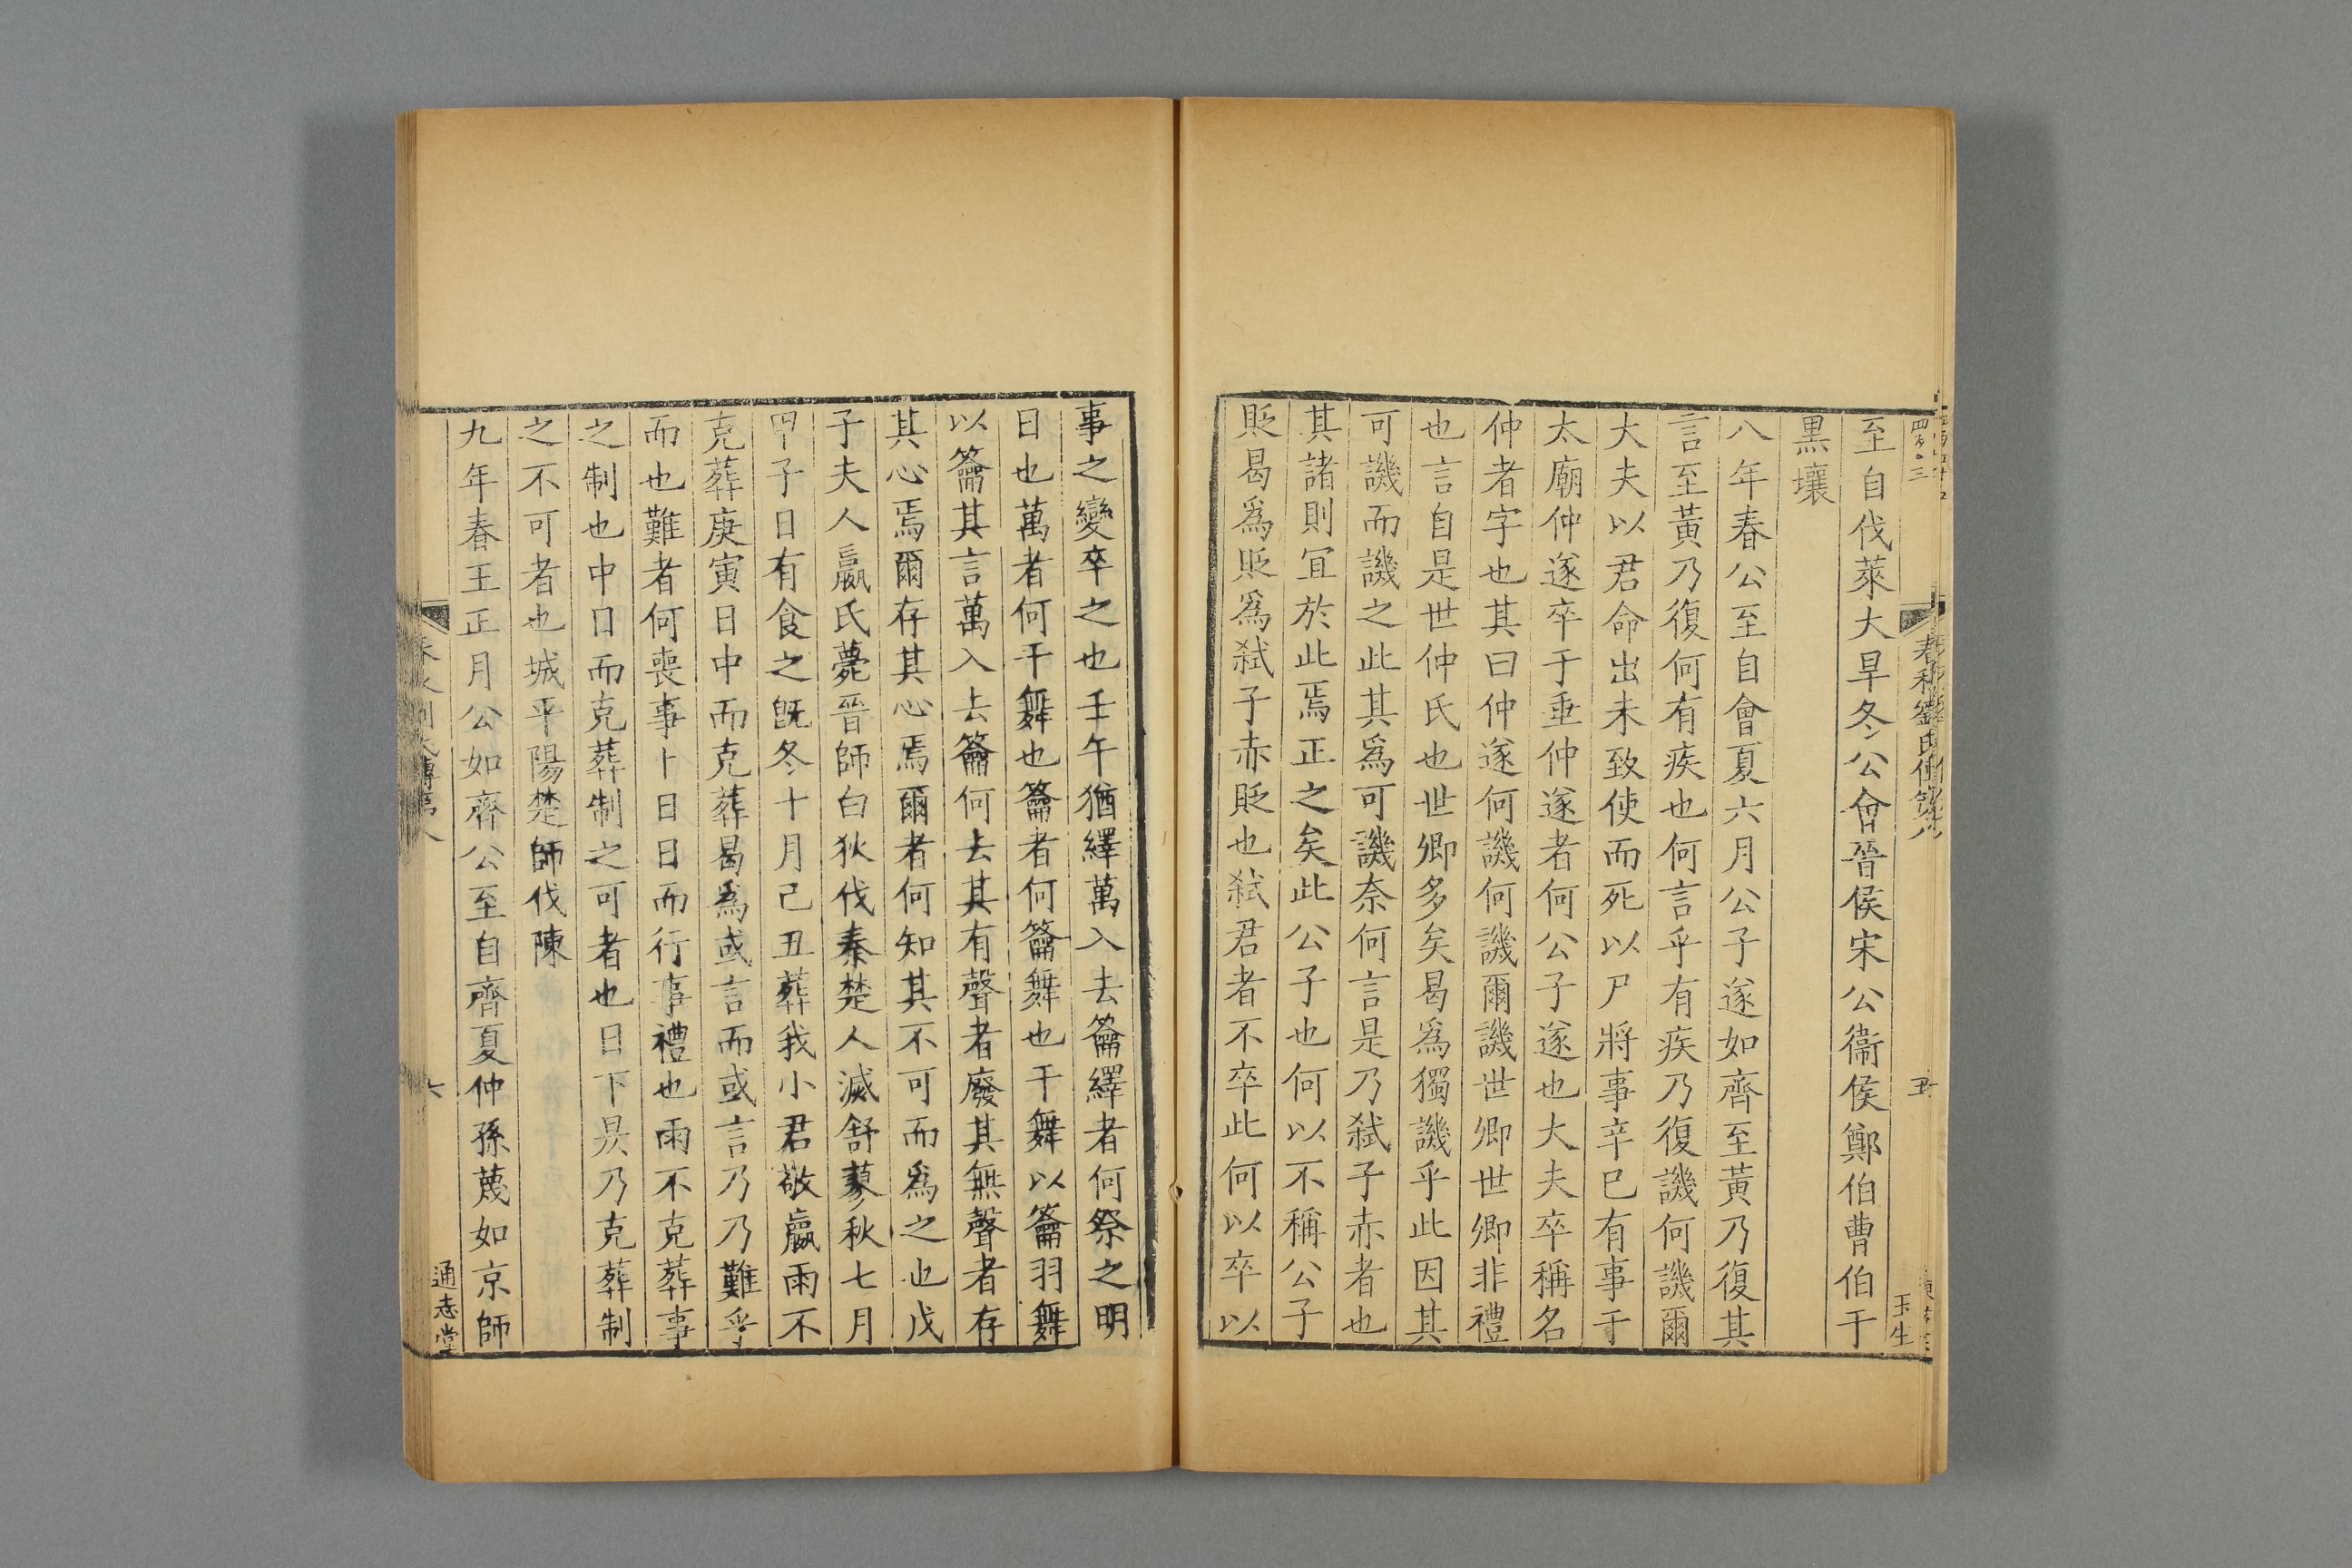 春秋劉氏傳第八
五
玉生
至自伐萊大旱冬公會晉侯宋公衞侯鄭伯曹伯于
黑壤
八年春公至自會夏六月公子遂如齊至黃乃復其
言至黃乃復何有疾也何言乎有疾乃復譏何譏爾
大夫以君命出未致使而死以尸將事辛巳有事于
太廟仲遂卒于垂仲遂者何公子遂也大夫卒稱名
仲者字也其曰仲遂何譏何譏爾譏世卿世卿非禮
也言自是世仲氏也世卿多矣曷爲獨譏乎此因其
可譏而譏之此其爲可譏奈何言是乃弑子赤者也
其諸則冝於此焉正之矣此公子也何以不稱公子
貶曷爲貶爲弑子赤貶也弑君者不卒此何以卒以
事之變卒之也壬午猶繹萬入去籥繹者何祭之明
日也萬者何干舞也籥者何籥舞也干舞以籥羽舞
以籥其言萬入去籥何去其有聲者廢其無聲者存
其心焉爾存其心焉爾者何知其不可而爲之也戊
子夫人嬴氏薨晉師白狄伐秦楚人滅舒蓼秋七月
甲子日有食之旣冬十月己丑葬我小君敬嬴雨不
克葬庚寅日中而克葬曷爲或言而或言乃乃難乎
而也難者何喪事卜日日而行事禮也雨不克葬事
之制也中日而克葬制之可者也日下昃乃克葬制
之不可者也城平陽楚師伐陳
九年春王正月公如齊公至自齊夏仲孫蔑如京師
六
通志堂